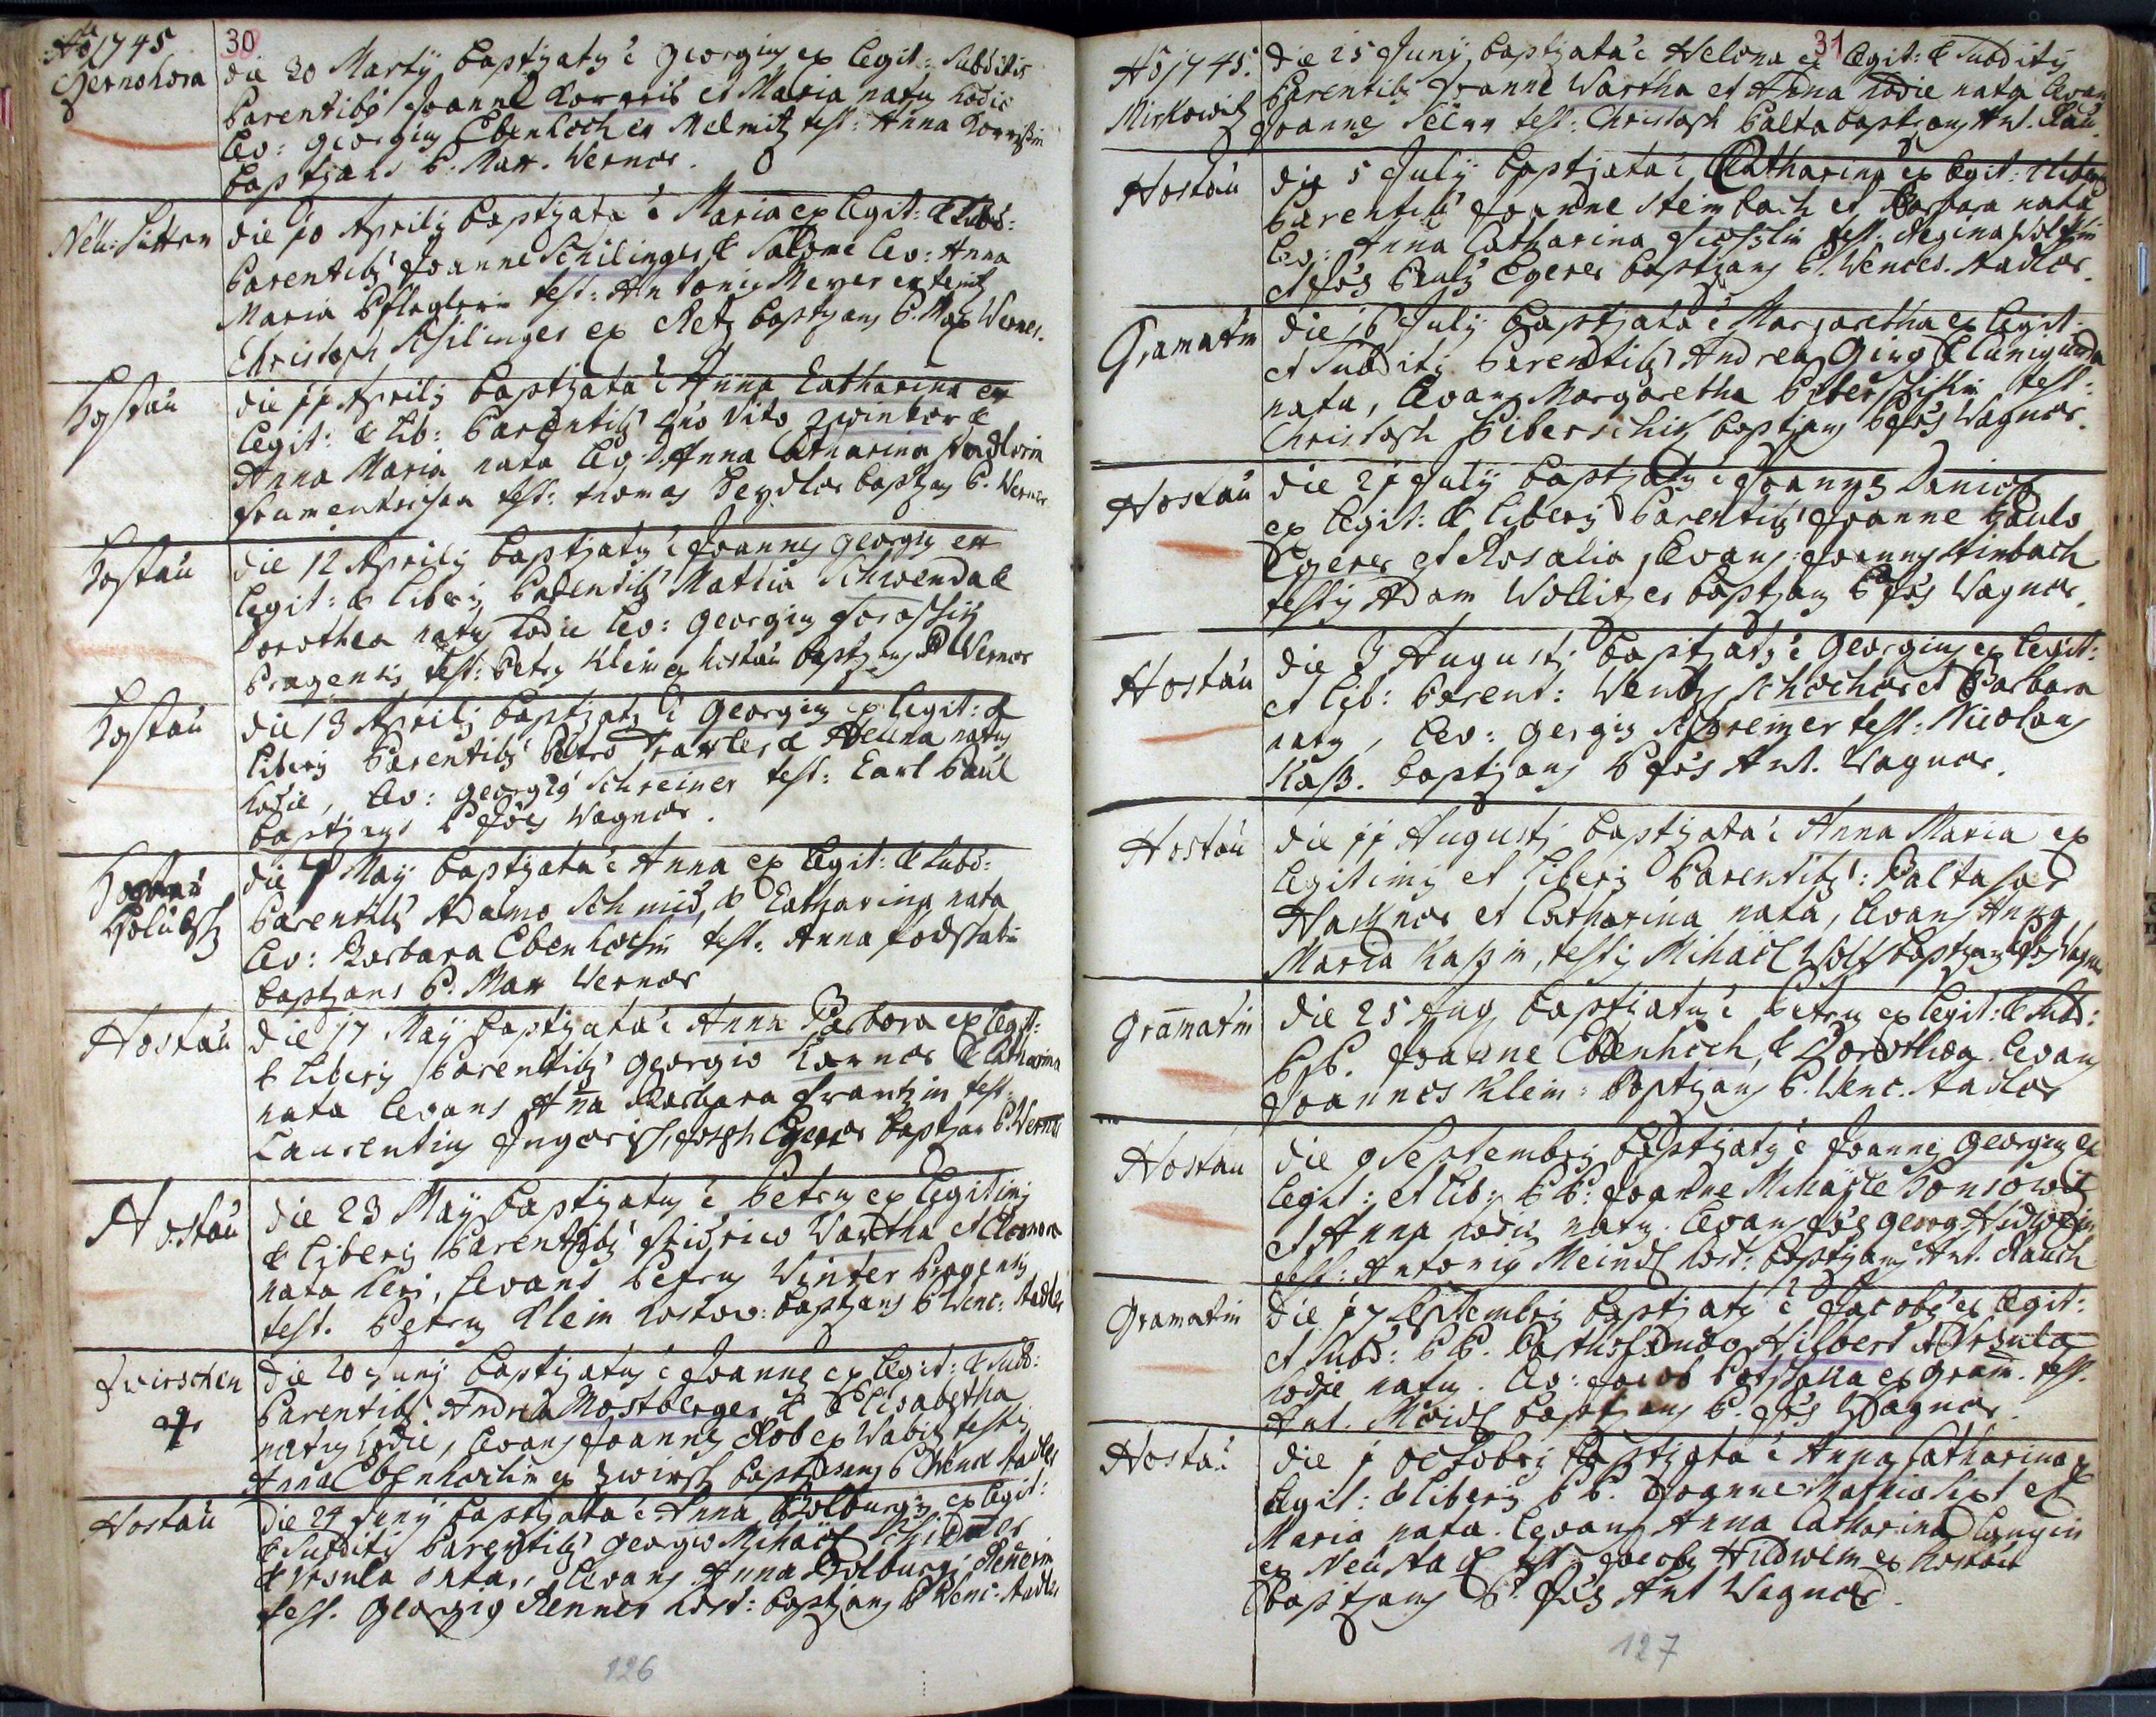 Aō 1745
30
Zernohora
die 20 Martÿ baptizatus ē Georgius ex legit: subditis
Parentibus Joanne Korvris et Maria natus hodie
lev: Georgius Ebenhoch ex Melmitz test: Anna
baptizans P. Max. Werner.
Neu-Sitten
die 10 Aprilis baptizata ē Maria ex legit: & subd:
Parentibus Joanne Schilinger & Salome lev: Anna
Maria Pfleglerin test: Antonius Meyer ex
Christoph Schilinger ex Retz baptizans P. Max Werner.
Hostau
die 11 Aprilis baptizata ē Anna Catharina ex
legit: & lib: Parentibus Dno Vito &
Anna Maria nata lev: Anna Catharina Stadlerin
test: Thomas Peydler baptizans P. Werner
Hostau
die 12 Aprilis baptizatus ē Joannes Georgius ex
legit: & liberis Parentibus Mathia Schwenda &
Dorothea natus hodie lev: Georgius
Pragensis test: Petrus Klein ex Hostau baptizans P. Werner
Hostau
die 13 Aprilis baptizatus ē Georgius ex legit: &
liberis Parentibus Petro Traxler & Helena natus
hodie, lev: Georgius Schreiner test: Carl Paul
baptizans P Jōes Wagner.
Hostau
Holubsch
die 7 Maÿ baptizata ē Anna ex legit: & subd:
Parentibus Adamo Schmid, & Catharina nata
lev: Barbara Ebenhochin test: Anna
baptizans P. Max Werner
Hostau
die 17 Maÿ baptizata ē Anna Barbara ex legit:
& liberis Parentibus Georgio Karner & Catharina
nata levans Aña Barbara Frantzin test:
Laurentius Joseph Egerer baptizans P. Werner
Hostau
die 23 Maÿ baptizatus ē Petrus ex legitimis
& liberis Parentibus Fridrico Wartha et Eleonora
natus heri, levans Petrus Winter Pragensis
test. Petrus Klein Hostov: baptizans P Wenc: Stadler
Zwirschen
die 20 Junÿ baptizatus ē Joannes ex legit: & subd:
Parentibus Andrea Mostberger & Elisabetha
natus hodie, levans Joannes Rob ex Wabitz testis
Anna Ebenhochin ex Zwirsch baptizans P Wence Stadler
Hostau
die 24 Junÿ baptizata ē Anna Wolburgis ex legit:
& subditis Parentibus Georgio Michäel
& Ursula nata, levans Anna Wolburgis Renerin
test. Georgius Renner Host: baptizans P Wenc. Stadler
126
Aō 1745.
31
Mirkowitz
die 25 Junÿ baptizata ē Helena ex legit: & subditis
Parentibus Joanne Wartha et Anna hodie nata levans
Joannes test: Christoph Palta baptizans Ant. Rau.
Hostau
die 5 Julÿ baptizata ē Catharina ex legit: & liberis
Parentibus Joanne Steinbach et Barbara nata
lev: Anna Catharina test: Regina Wolfin
et Jōes Paulus Egerer baptizans P. Wences. Stadler.
Gramatin
die 16 Julÿ baptizata ē Margaretha ex legit:
et subditis Parentibus Andrea Ging & Cunigunda
nata, levans Margaretha Piberschikin test:
Christoph Piberschik baptizans P Jōes Wagner.
Hostau
die 21 Julÿ baptizatus ē Joannes Daniel
ex legit: & liberis Parentibus Joanne Paulo
Egerer et Rosalia, levans: Joannes Steinbach
testis Adam Wollitzer baptizans P Jōes Wagner.
Hostau
die 3 Augusti baptizatus ē Georgius ex legit:
et lib: Parent: Wentz Schocher et Barbara
natus, lev: Georgius Schreiner test: Nicolaus
Kasz. baptizans P Jōes Ant. Wagner.
Hostau
die 11 Augusti baptizata ē Anna Maria ex
legitimis et liberis Parentibus: Baltasar
Haschner et Catharina nata, levans Anna
Maria Kaszin, testis Mihäel Wolf baptizans P Jōes Wagner
Gramatin
die 25 Aug baptizatus ē Petrus ex legit: & subd:
P P. Joanne Ebenhöch, & Dorothea. levans
Joannes Klein: baptizans P. Wenc. Stadler
Hostau
die 9 Septembris baptizatus ē Joannes Georgius ex
legit: et lib: P P: Joanne Mihäele
et Anna hodie natus. levans Jōes Georg Hidlwein
test: Antonius Meindl host: baptizans Ant. Rauch
Gramatin
die 17 Septembris baptizatus ē Jacobus ex legit:
et subd: P P. Bartholomeo Hilbert & Ursula
hodie natus. lev: Jacob ex Gram. test.
Ant. Meidl baptizans P. Jōes Wagner.
Hostau
die 1 Octobris baptizata ē Anna Catharina ex
legit: & liberis P P. Joanne Mathia Sixt et
Maria nata. levans Anna Catharina Langin
ex Neustadl test: Jacobus Hildwein ex Hostau
baptizans P. Jōes Ant Wagner.
127